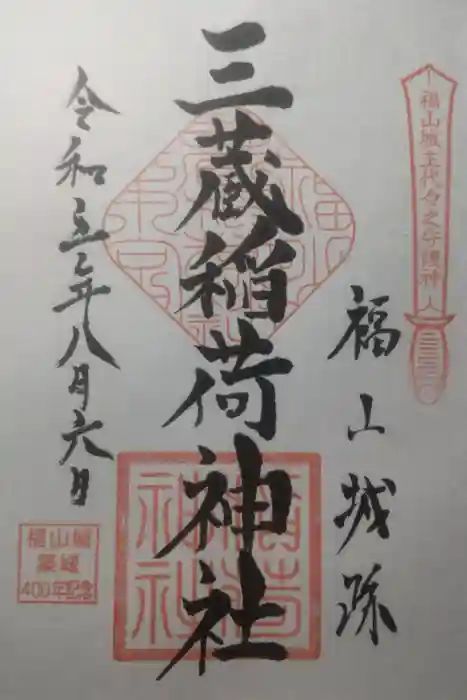 福山城主代々之守護神
福山城跡
三蔵稲荷神社
令和五年八月六日
福山城
築城
400年記念
稲荷
神社